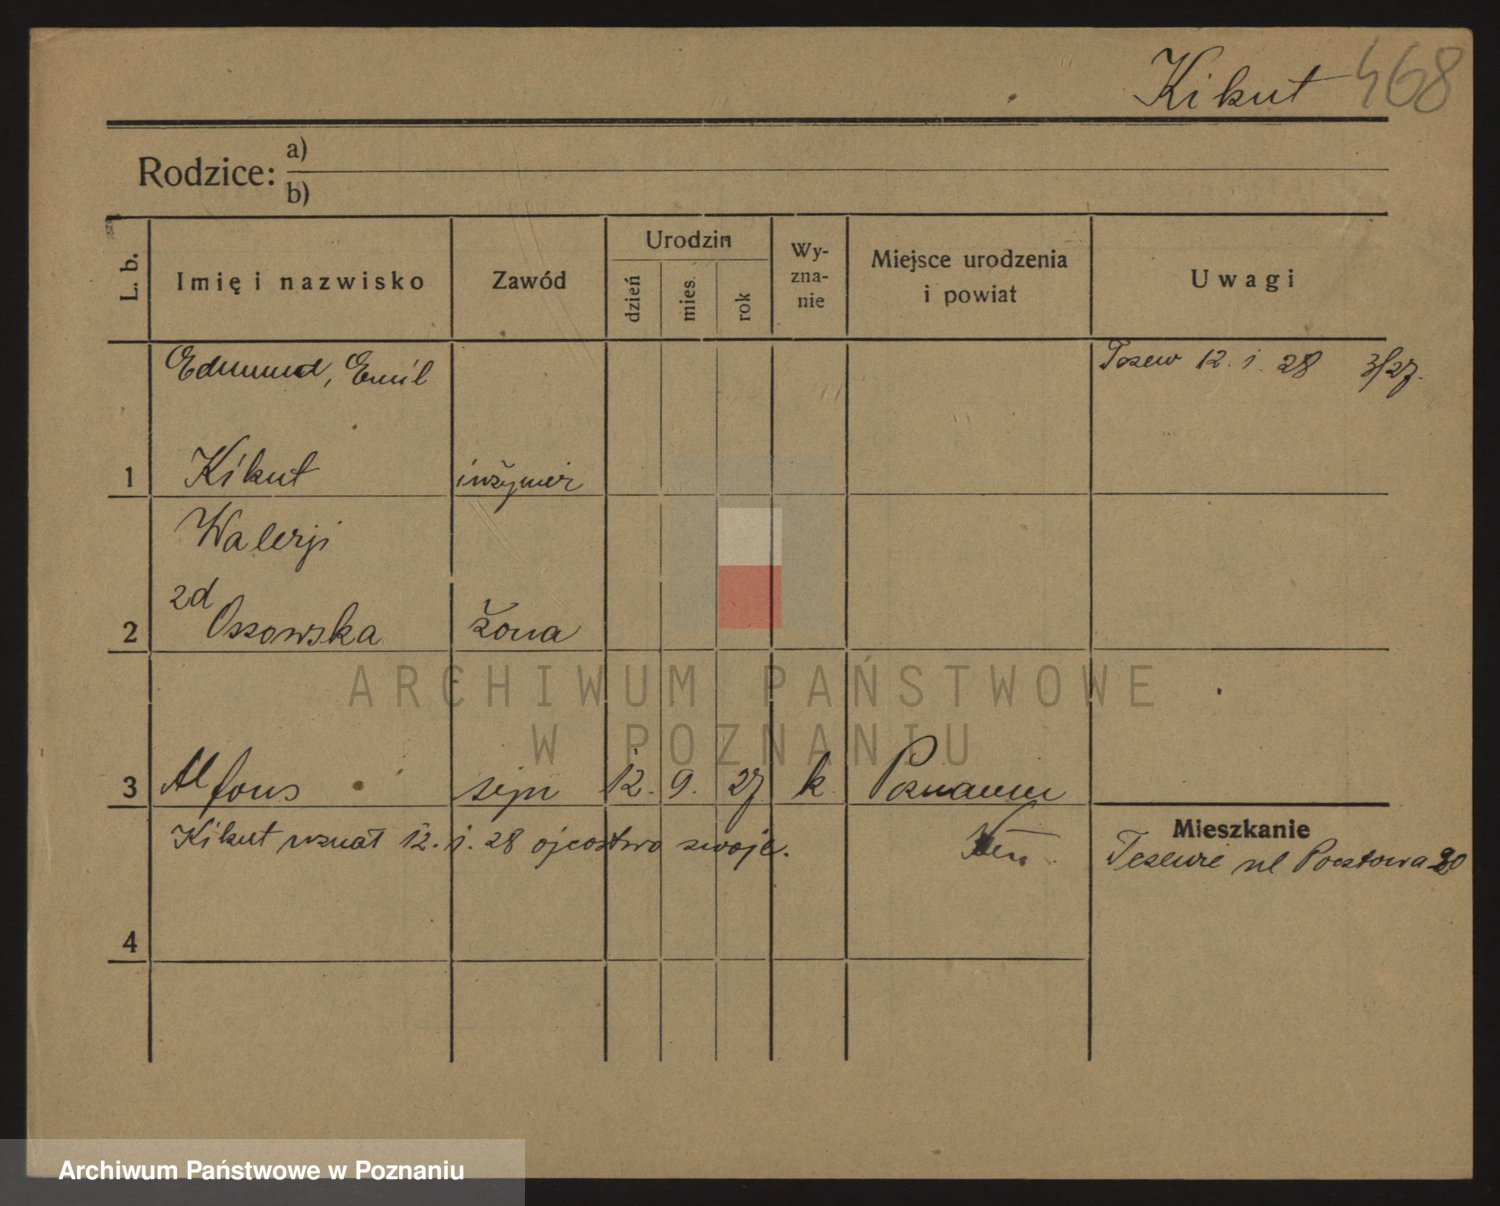 Kikut 468
Rodzice: a)
b)
L. b.
Imię i nazwisko
Zawód
Urodzin
dzień
mies.
rok
Wy-
zna-
nie
Miejsce urodzenia
i powiat
Uwagi
Edmund, Emil
Tczew 12. i. 28 3/27.
1 Kikut inżynier
Walerji
zd
2 Ossowska żona
ARCHIWUM PAŃSTWOWE
W POZNANIU
3 Alfons syn 12. 9. 27 k Poznaniu
Kikut uznał 12. i. 28 ojcostwo swoje.
Mieszkanie
Tczewie ul Pocztowa 20
4
Archiwum Państwowe w Poznaniu